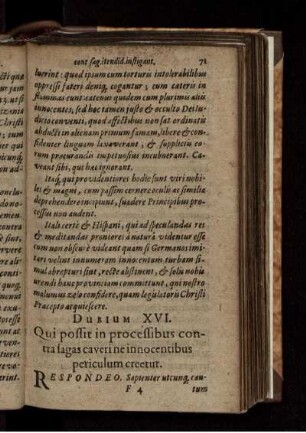 cont sag. itendid. instigant. 71
luerint: quod ipsum cum torturis intolerabilibus
oppressi fateri denique cogantur; cum cæteris in
flammas eunt: catenus quidem cum plurimis aliis
innocentes; sed hoc tamen justo & occulto Dei iu-
dicio conventi, quod affectibus non sat ordinatis
abducti in alienam primum famem, libere & con-
fidenter linguam laxaverant, & supplicia eo-
rum procurandis impetuosius incubuerant. Ca-
veant sibi, qui hæc ignorant.
Itaque quo providentiores hodie sunt viri nobi-
les & magni, cum passim cernere oculis ac similia
deprehendere incipiunt, suadere Principibus pro-
cessus non audent.
Itali certe & Hispani, qui ad speculandas res
& meditandas proniores à natura videntur esse
cum non obscurè vident quam si Germanos imi-
tari velint innumeram innocentum turbam si-
mul abrepturi sint, recte abstinent, & soli nobis
urendi hanc provinciam committunt, qui nostro
malumus zelo confidere, quam legislatoris Christi
Præcepto acquiescere.
DUBIUM XVI.
Qui possit in processibus con-
tra sagas caveri ne innocentibus
periculum creetur.
RESPONDEO. Sapienter utcunq, cau-
F 4 tum